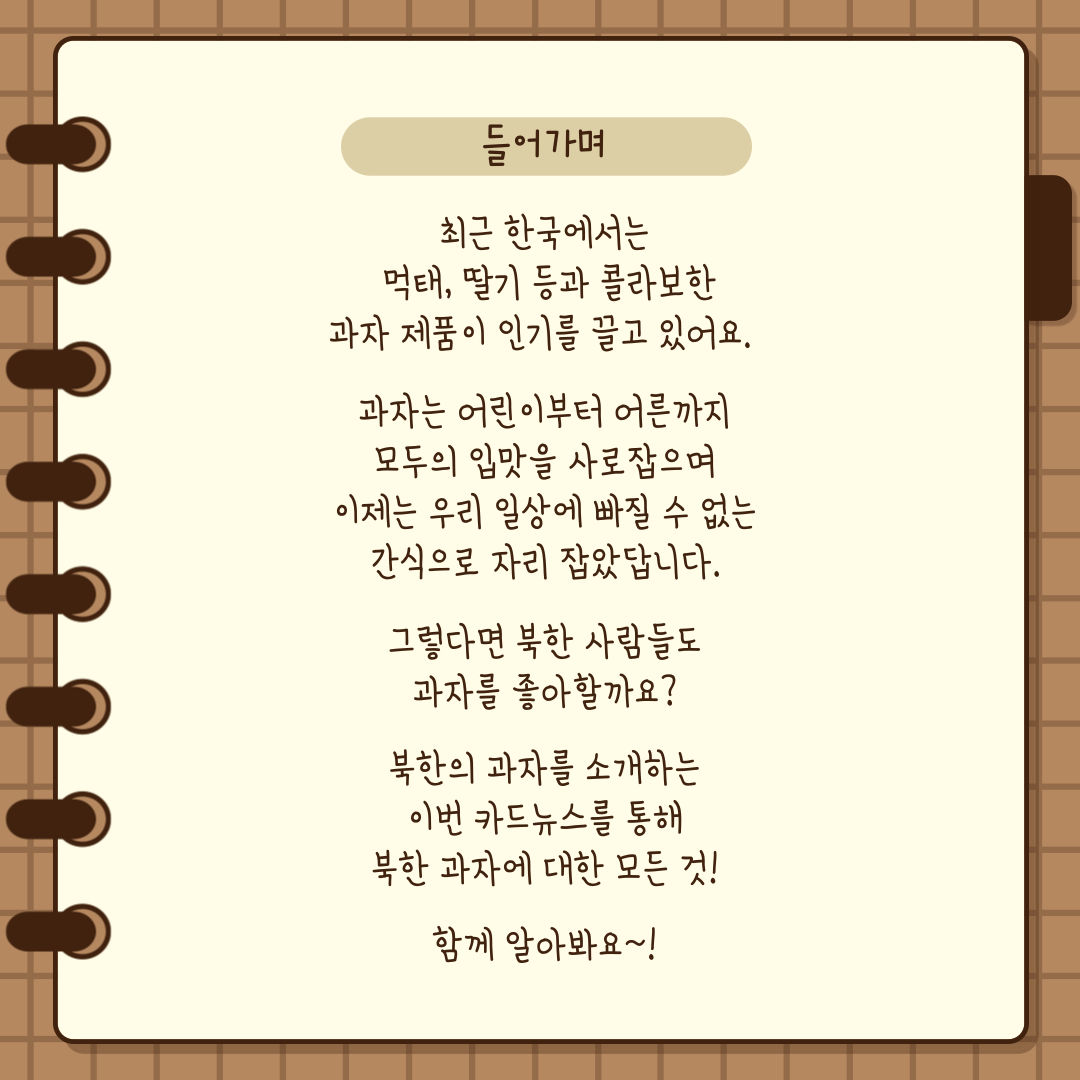 들어가며
최근 한국에서는
먹태, 딸기 등과 콜라보한
과자 제품이 인기를 끌고 있어요.
과자는 어린이부터 어른까지
모두의 입맛을 사로잡으며
이제는 우리 일상에 빠질 수 없는
간식으로 자리 잡았답니다.
그렇다면 북한 사람들도
과자를 좋아할까요?
북한의 과자를 소개하는
이번 카드뉴스를 통해
북한 과자에 대한 모든 것!
함께 알아봐요~!